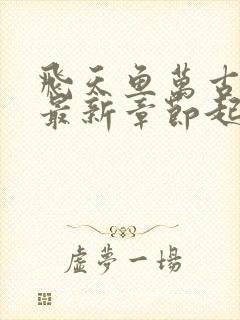 飛天魚萬古
最新章節起
虛夢一場